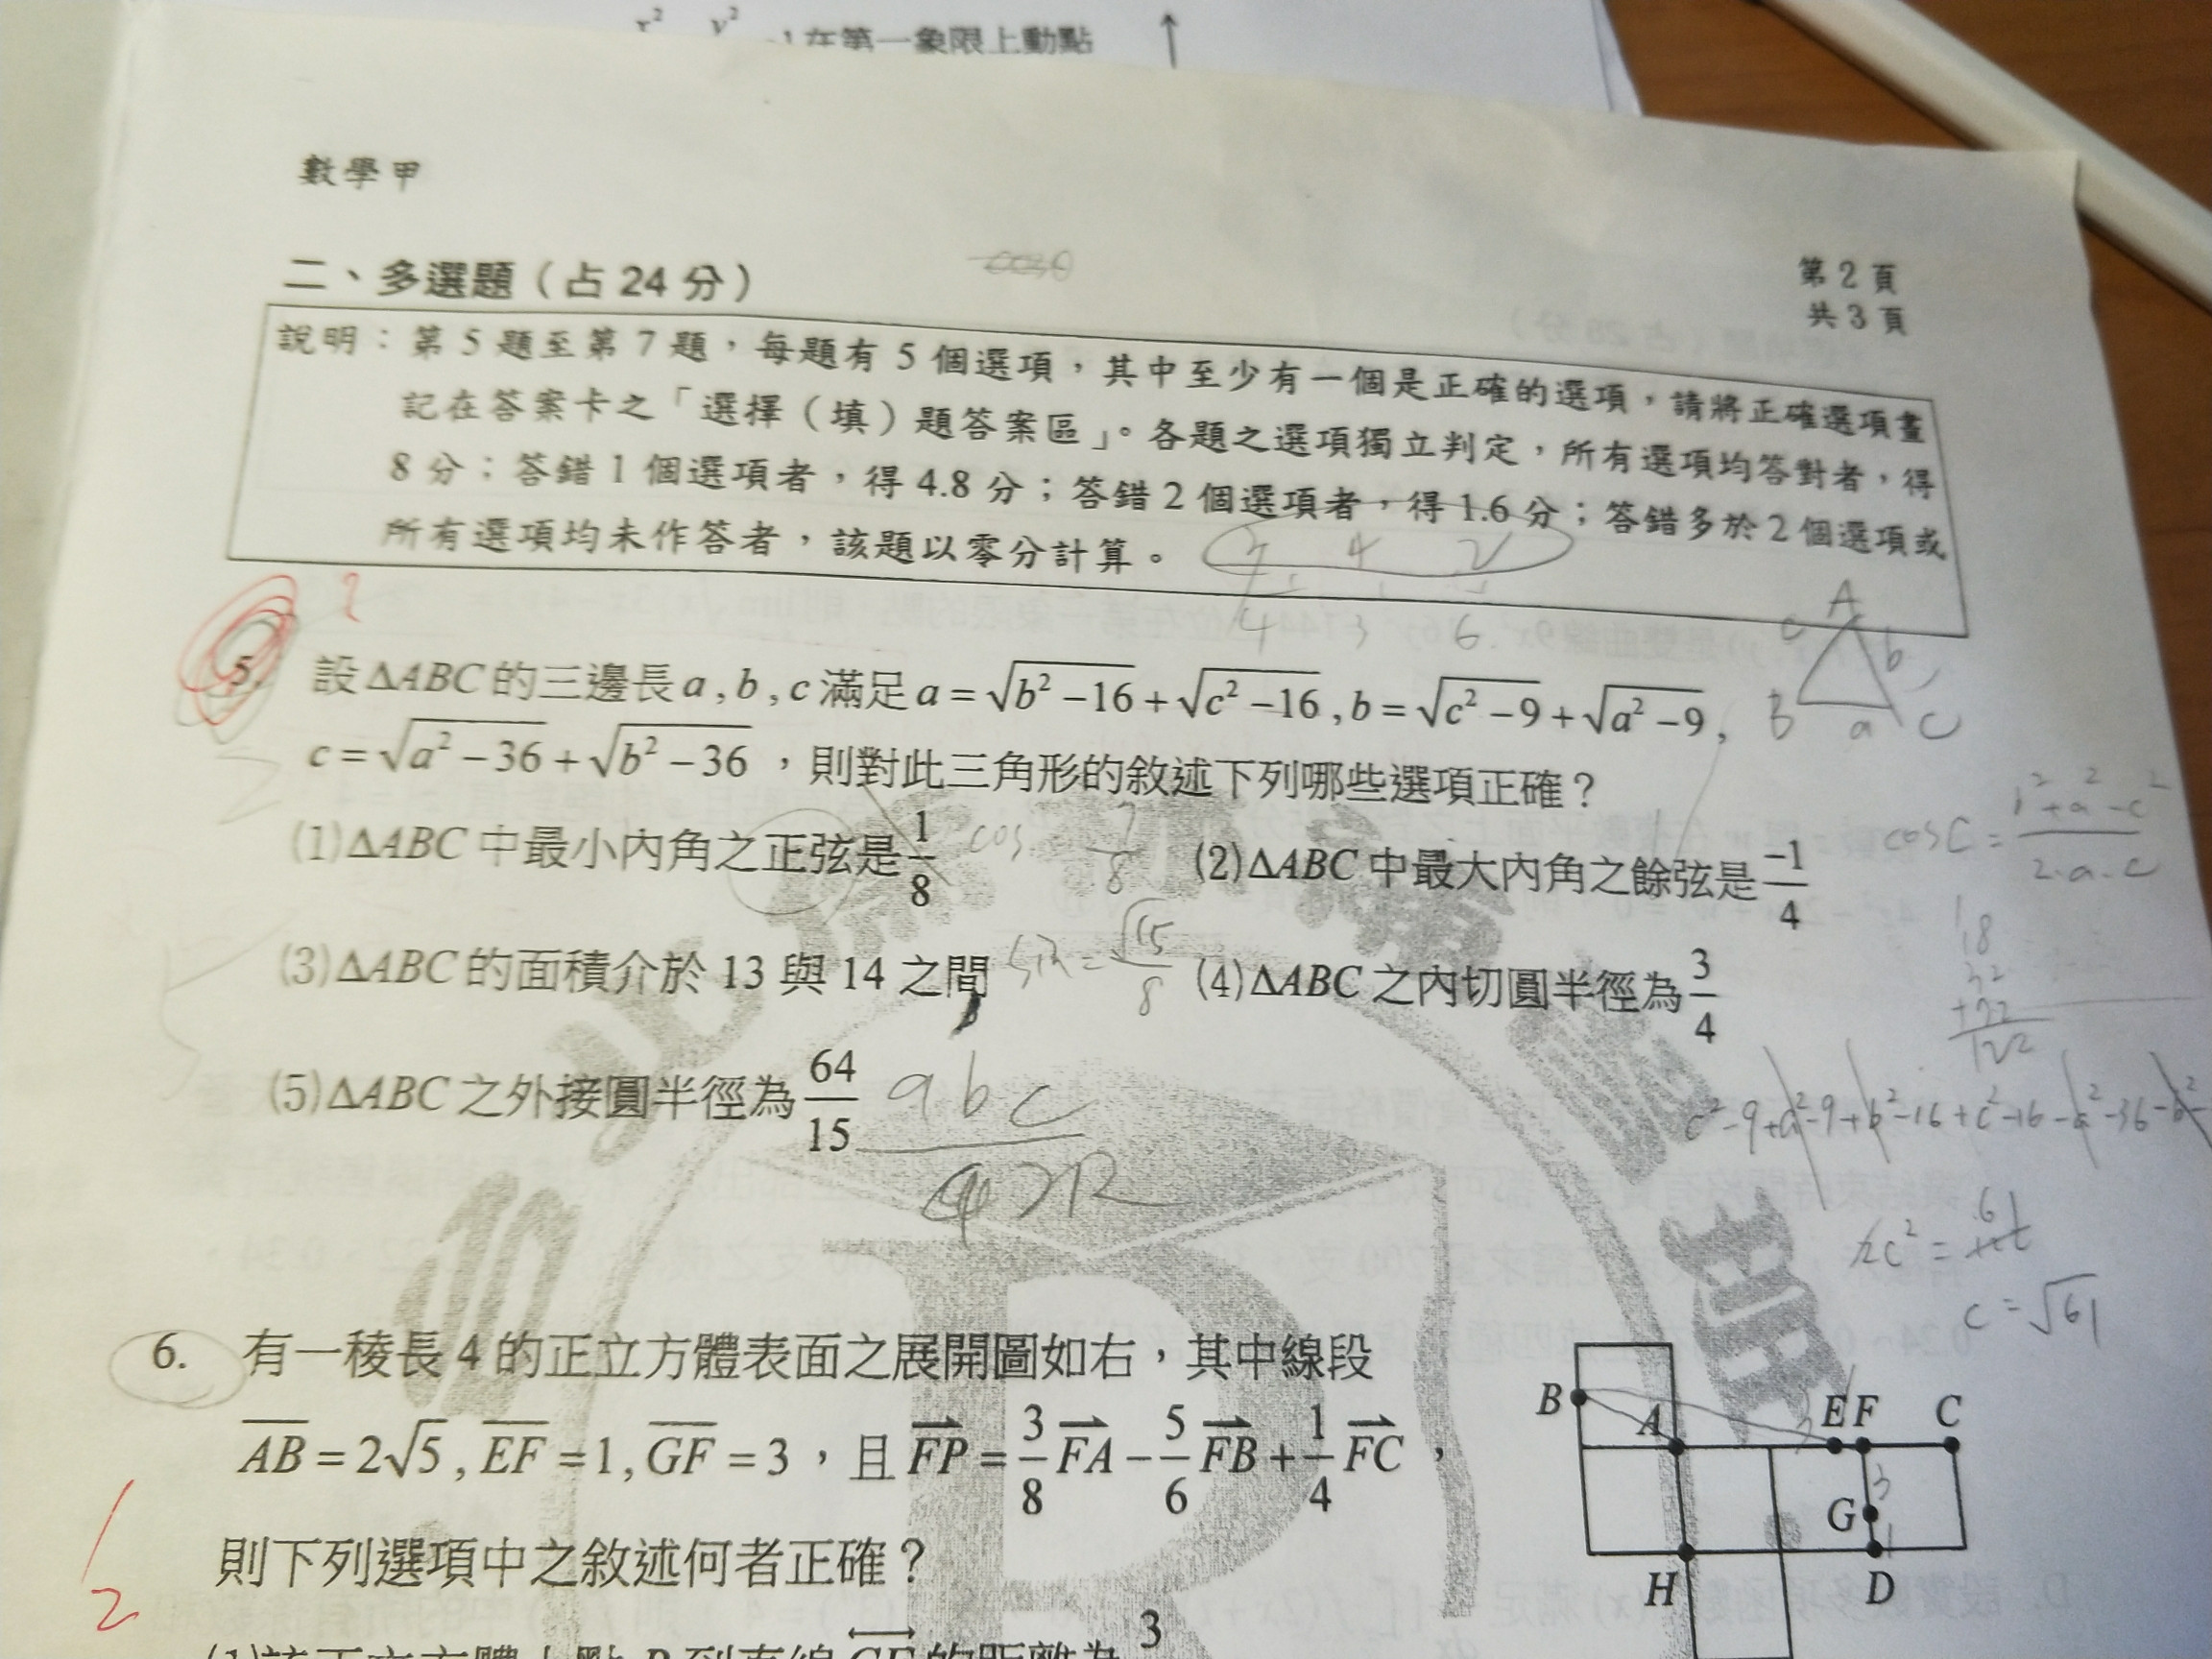 x² y²
在第一象限上動點
數學甲
第 2 頁
共 3 頁
二、多選題（占 24 分）
cosθ
說明：第 5 題至第 7 題，每題有 5 個選項，其中至少有一個是正確的選項，請將正確選項畫
記在答案卡之「選擇（填）題答案區」。各題之選項獨立判定，所有選項均答對者，得
8 分；答錯 1 個選項者，得 4.8 分；答錯 2 個選項者，得 1.6 分；答錯多於 2 個選項或
所有選項均未作答者，該題以零分計算。
4 3 6
A
c b
B a C
5. 設 ΔABC 的三邊長 a , b , c 滿足 a = √(b² −16) + √(c² −16) , b = √(c² −9) + √(a² −9) ,
c = √(a² −36) + √(b² −36) ，則對此三角形的敘述下列哪些選項正確？
(1) ΔABC 中最小內角之正弦是 1/8
cos 7/8
(2) ΔABC 中最大內角之餘弦是 −1/4
cosC = (b²+a²-c²)/(2·a·c)
(3) ΔABC 的面積介於 13 與 14 之間
sin = √15/8
(4) ΔABC 之內切圓半徑為 3/4
18
32
+72
122
(5) ΔABC 之外接圓半徑為 64/15
abc
c²-9+a²-9+b²-16+c²-16-a²-36-b²-
2c² =
c = √61
6. 有一稜長 4 的正立方體表面之展開圖如右，其中線段
AB = 2√5 , EF = 1, GF = 3 ，且 FP = 3/8 FA − 5/6 FB + 1/4 FC ，
則下列選項中之敘述何者正確？
B A E F C
3
G
1
H D
2
3